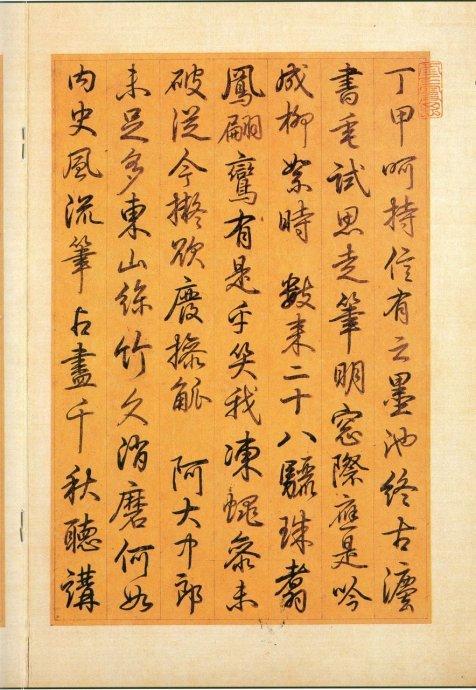 丁甲呵持信有之墨池終古灋
書垂試思走筆明窓際應是吟
成柳絮時 數来二十八驪珠翥
鳳翩鸞有是乎笑我凍蠅參未
破從今擬欲廢操觚 阿大中郎
未足多東山絲竹久消磨何如
內史風流筆占盡千秋聽講